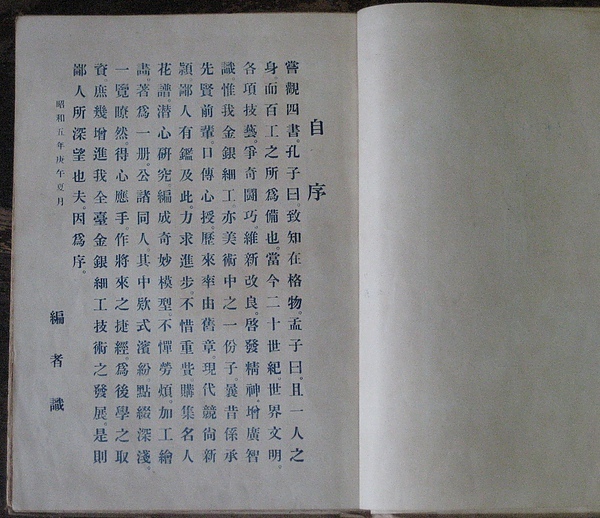 自序
嘗觀四書。孔子曰。致知在格物。孟子曰。且一人之
身而百工之所為備也。當今二十世紀。世界文明。
各項技藝。爭奇鬪巧。維新改良。啓發精神。增廣智
識。惟我金銀細工。亦美術中之一份子。曩昔係承
先賢前輩。口傳心授。歷來率由舊章。現代競尙新
穎。鄙人有鑑及此。力求進步。不惜重貲。購集名人
花譜。潛心研究。編成奇妙模型。不憚勞煩。加工繪
畵。著爲一册。公諸同人。其中欵式濱紛。點綴深淺。
一覽瞭然。得心應手。作將來之捷經。爲後學之取
資。庶幾增進我全臺金銀細工技術之發展。是則
鄙人所深望也夫。因爲序。
昭和五年庚午夏月
編者識